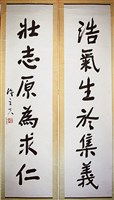 浩氣生於集義
壯志原為求仁